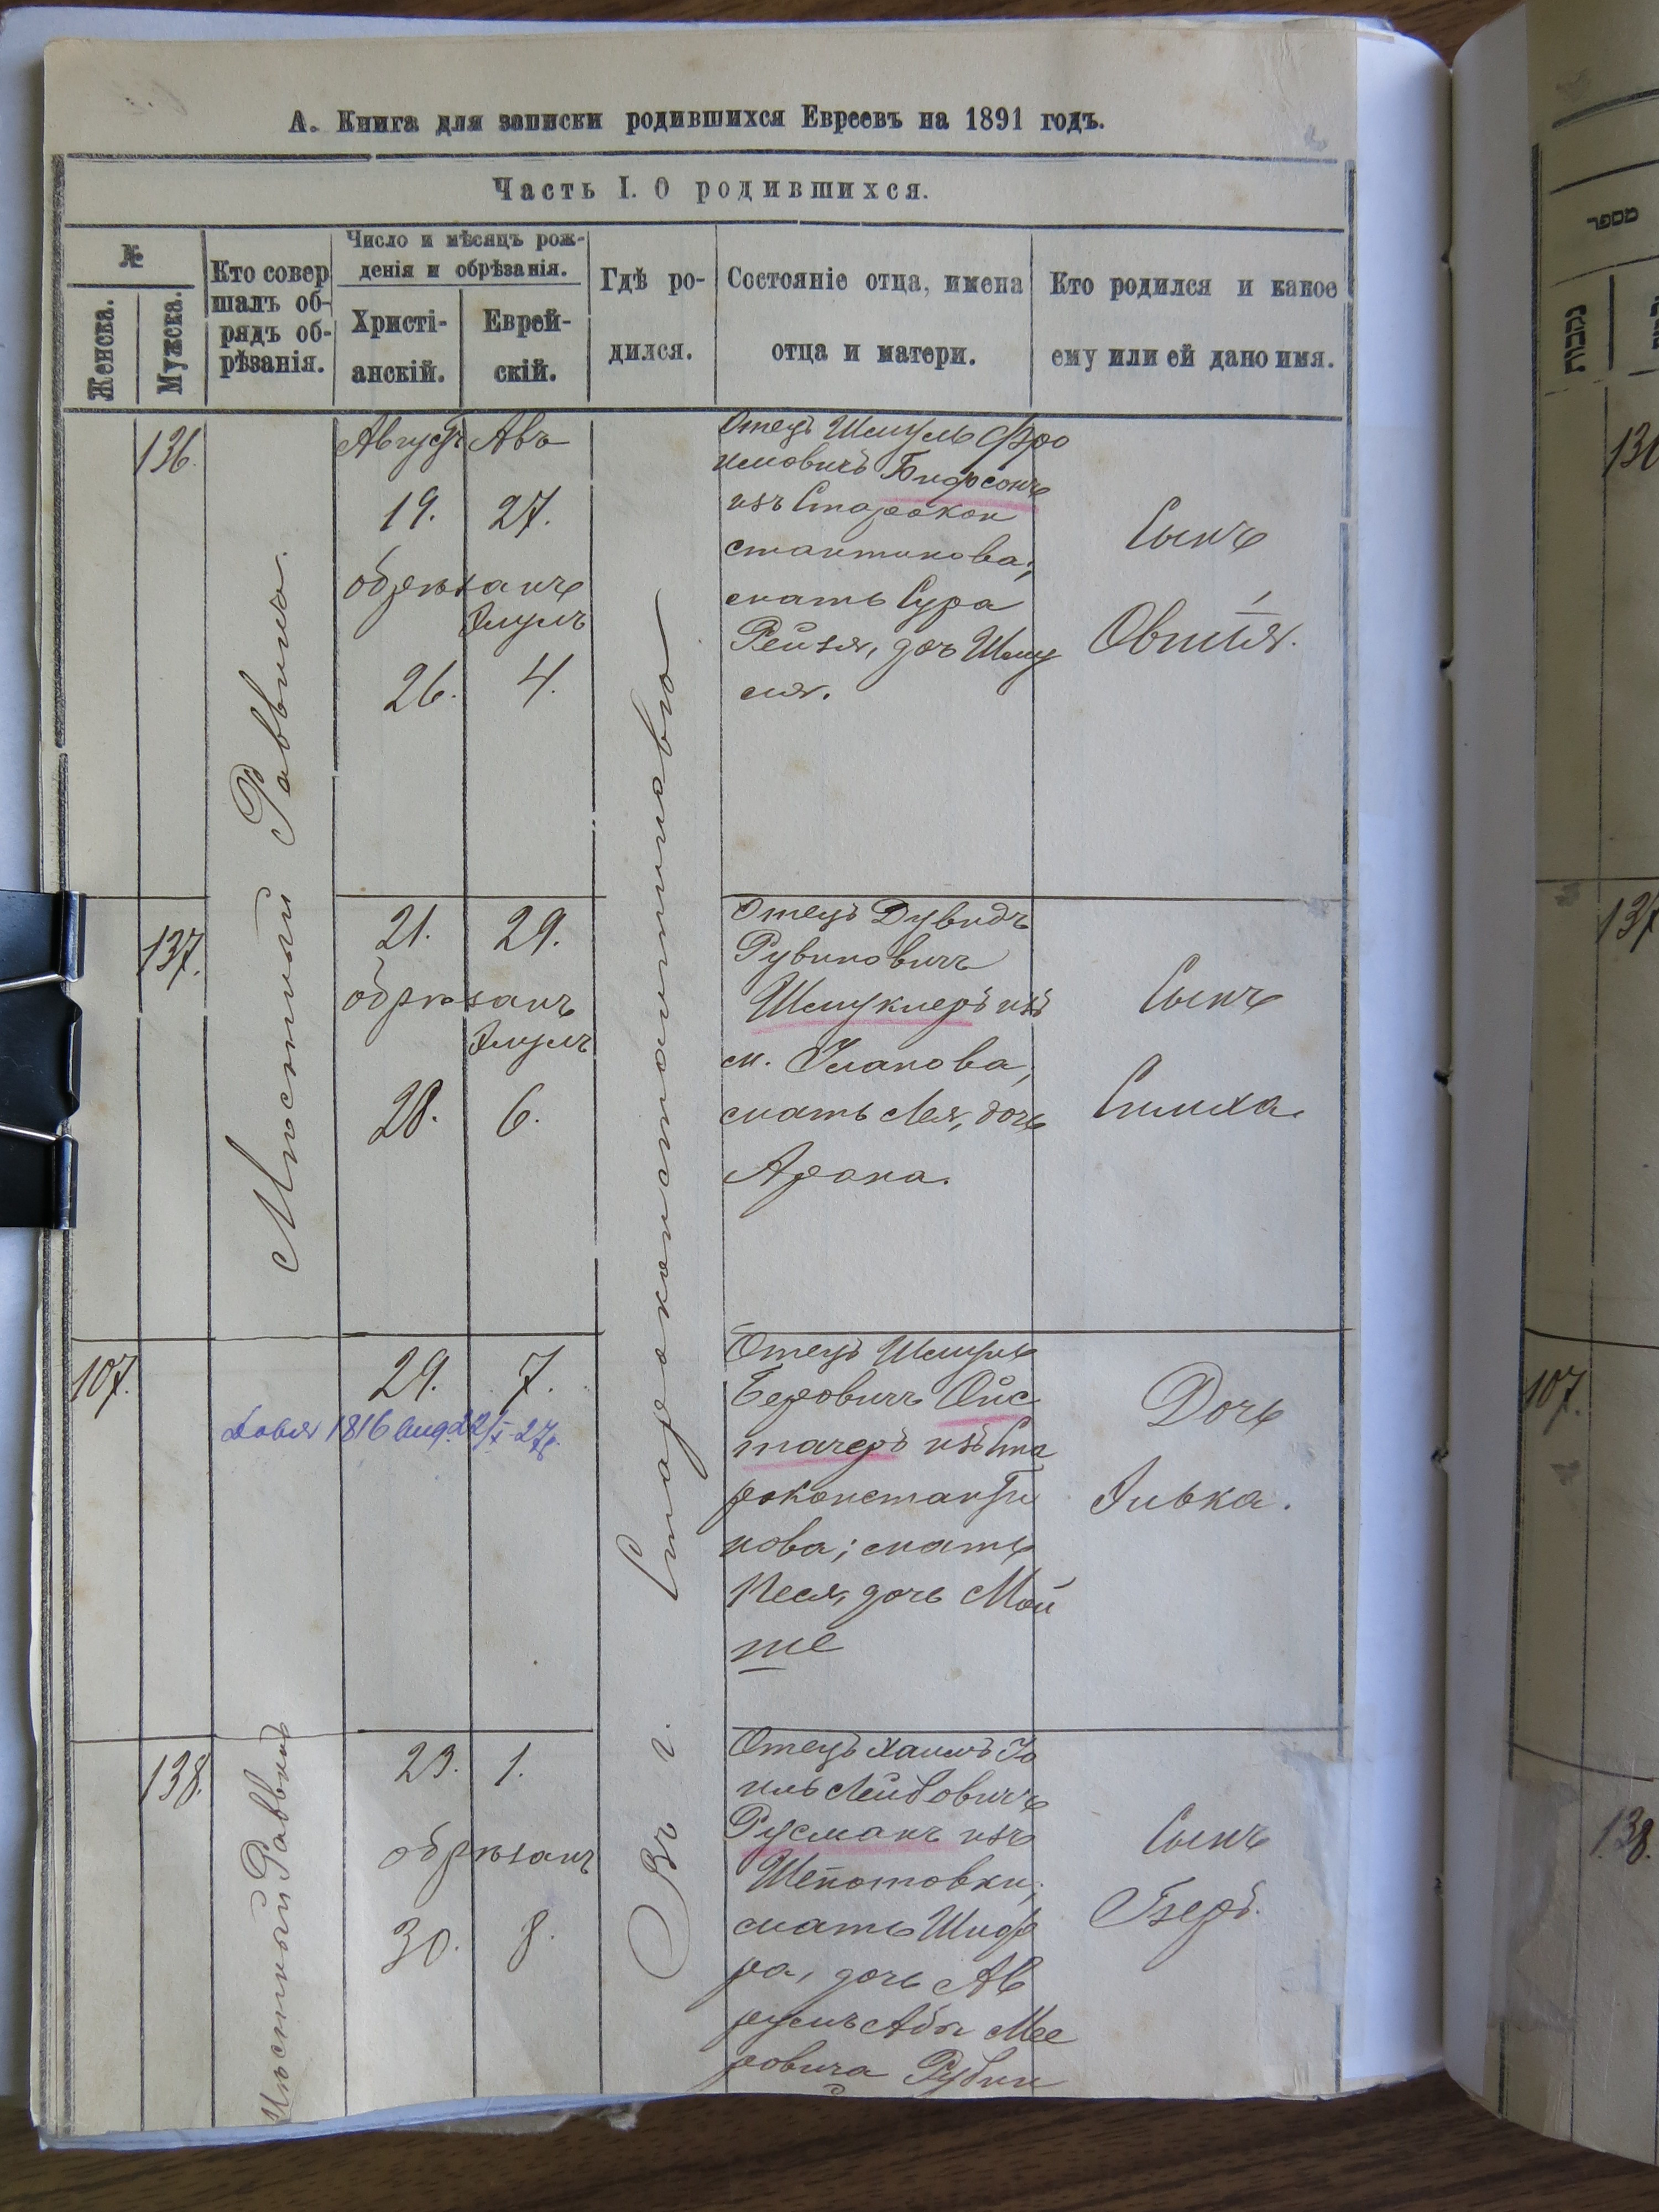 А. Книга для записки родившихся Евреевъ на 1891 годъ.
Часть I. О родившихся.
№
Женска.
Мужска.
Кто совер
шалъ об-
рядъ об-
рѣзанія.
Число и мѣсяцъ рож-
денія и обрѣзанія.
Христі-
анскій.
Еврей-
скій.
Гдѣ ро-
дился.
Состояніе отца, имена
отца и матери.
Кто родился и какое
ему или ей дано имя.
Мѣстный Раввинъ.
Въ г. Староконстантиновѣ
136.
Августъ Авъ
19. 27.
обрѣзанъ
Элулъ
26. 4.
Отецъ Шмуль Фро
имовичъ
изъ Старокон
стантинова;
мать Сура
Рейзя, дочь Шму
ля.
Сынъ
Овшія.
137.
21. 29.
обрѣзанъ
Элулъ
28. 6.
Отецъ Дувидъ
Рувиновичъ
Шмуклеръ изъ
м. Уланова,
мать Лея, дочь
Арона.
Сынъ
Симха.
107.
29. 7.
1816
Отецъ Шмуль
Беровичъ Ойс
тачеръ изъ Ста
роконстанти
нова; мать
Песя, дочь Мой
ше
Дочь
Зивка.
138.
Мѣстный Раввинъ
23. 1.
обрѣзанъ
30. 8.
Отецъ Хаимъ Іо
иль Лейбовичъ
Русманъ изъ
Шепетовки;
мать Шиф
ра, дочь Ав
румъ Абы Мее
ровича Рубин
Сынъ
מספר
נקבות
136
137
107.
138.